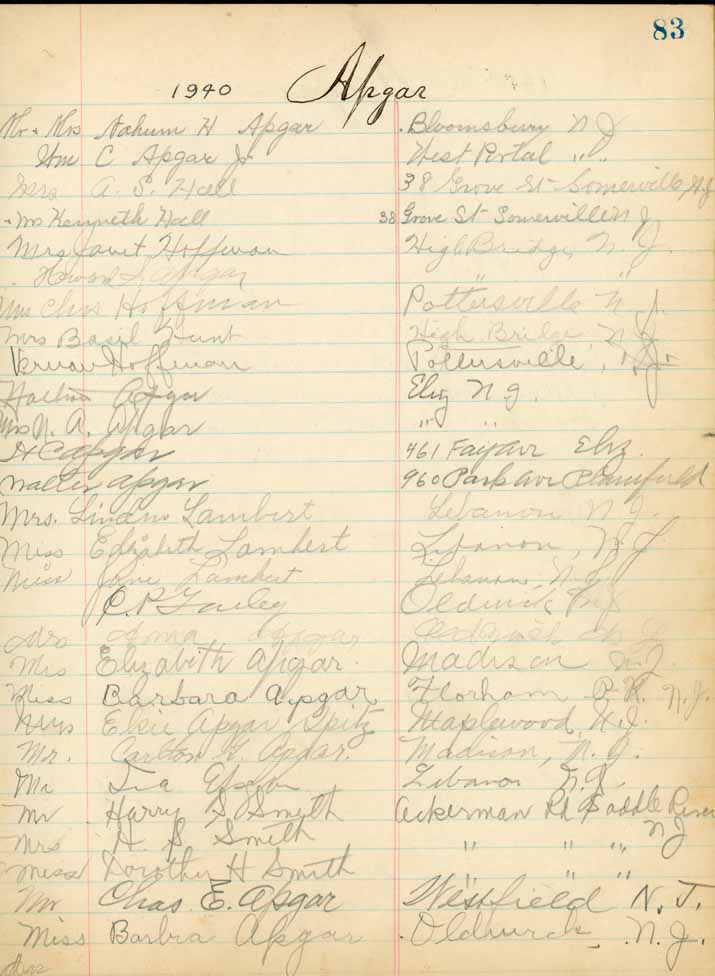 83
1940 Apgar
Mr & Mrs Nahum H Apgar . Bloomsbury N J
Wm C Apgar Jr West Portal " "
Mrs A. S. Hall 38 Grove St Somerville N.J
Mrs Kenneth Hall 38 Grove St Somerville N J
Mrs Janet Hoffman High Bridge, N. J.
Howard S. Apgar " "
Mrs Chas Hoffman Pottersville N. J.
Mrs Basil Hunt High Bridge N J
Vernon Hoffman Pottersville, N.J.
Apgar Eliz N.J.
Mrs N. A. Apgar " "
H C Apgar 461 Fay Ave Eliz.
Walter Apgar 960 Park Ave Plainfield
Mrs. Lambert Lebanon N J.
Miss Elizabeth Lambert Lebanon, N. J.
Miss Jane Lambert Lebanon, N. J.
C. P. Farley Oldwick N J
Mrs Anna Apgar Oldwick N J
Mrs Elizabeth Apgar. Madison N.J.
Miss Barbara Apgar Florham P.K. N.J.
Mrs Elsie Apgar Spitz Maplewood, N.J.
Mr. Carlton Apgar. Madison, N. J.
Mr Ira Lebanon N.J.
Mr Harry S Smith Ackerman Rd Saddle River
Mrs H. S. Smith " " " N J
Miss Dorothy H Smith " " "
Mr Chas. E. Apgar Westfield N. J.
Miss Barbra Apgar . Oldwick, N. J.